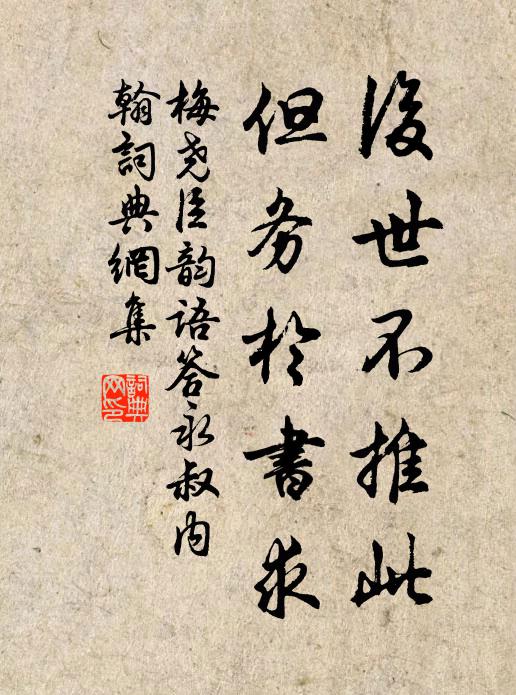 後世不推此
但务於書求
梅尧臣韵语答永叔内
翰詞典網集
詞典
网印